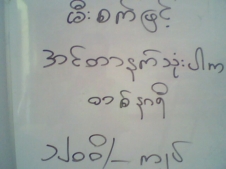 မီးစက်ဖြင့်
အင်တာနက်သုံးပါက
တစ်နာရီ
၁၂၀၀ိ/- ကျပ်